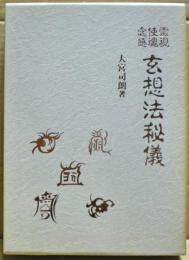 霊視
使魂
玄想法秘儀
大宮司朗著